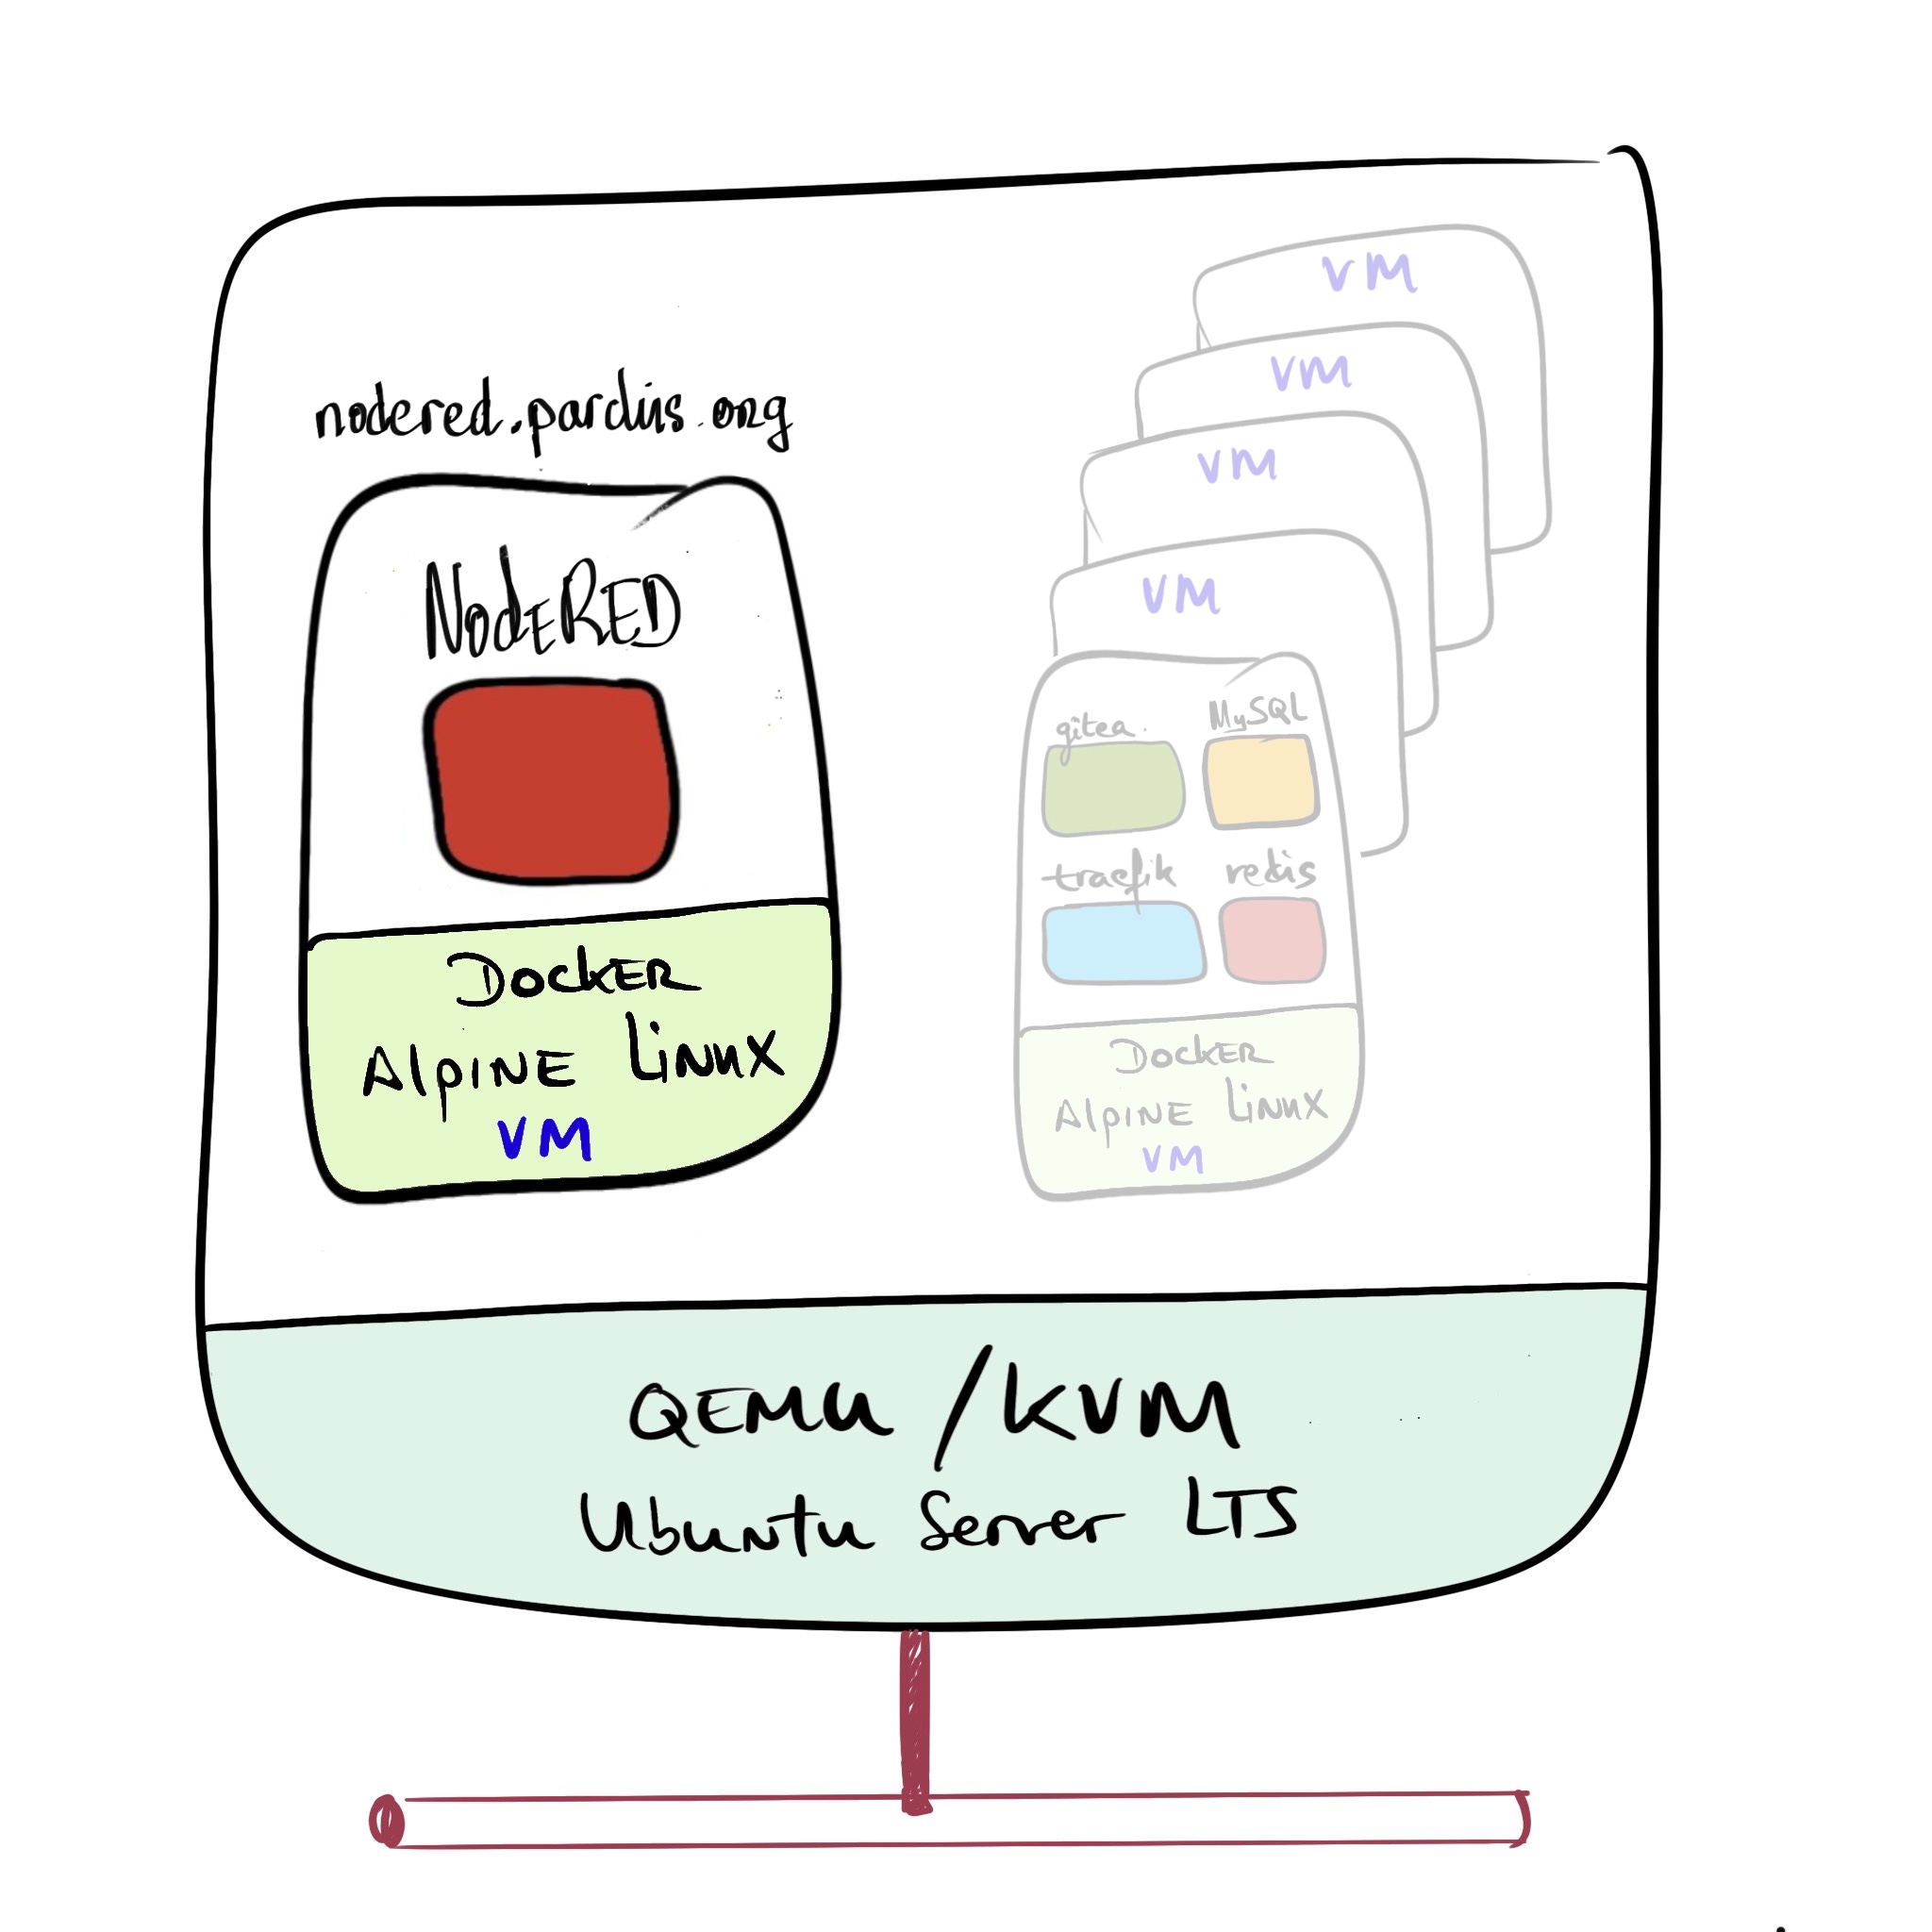 nodered.parduis.org
NodeRED
Docker
Alpine Linux
VM
VM
VM
VM
VM
gitea
MySQL
traefik
redis
Docker
Alpine Linux
VM
QEMU/KVM
Ubuntu Server LTS